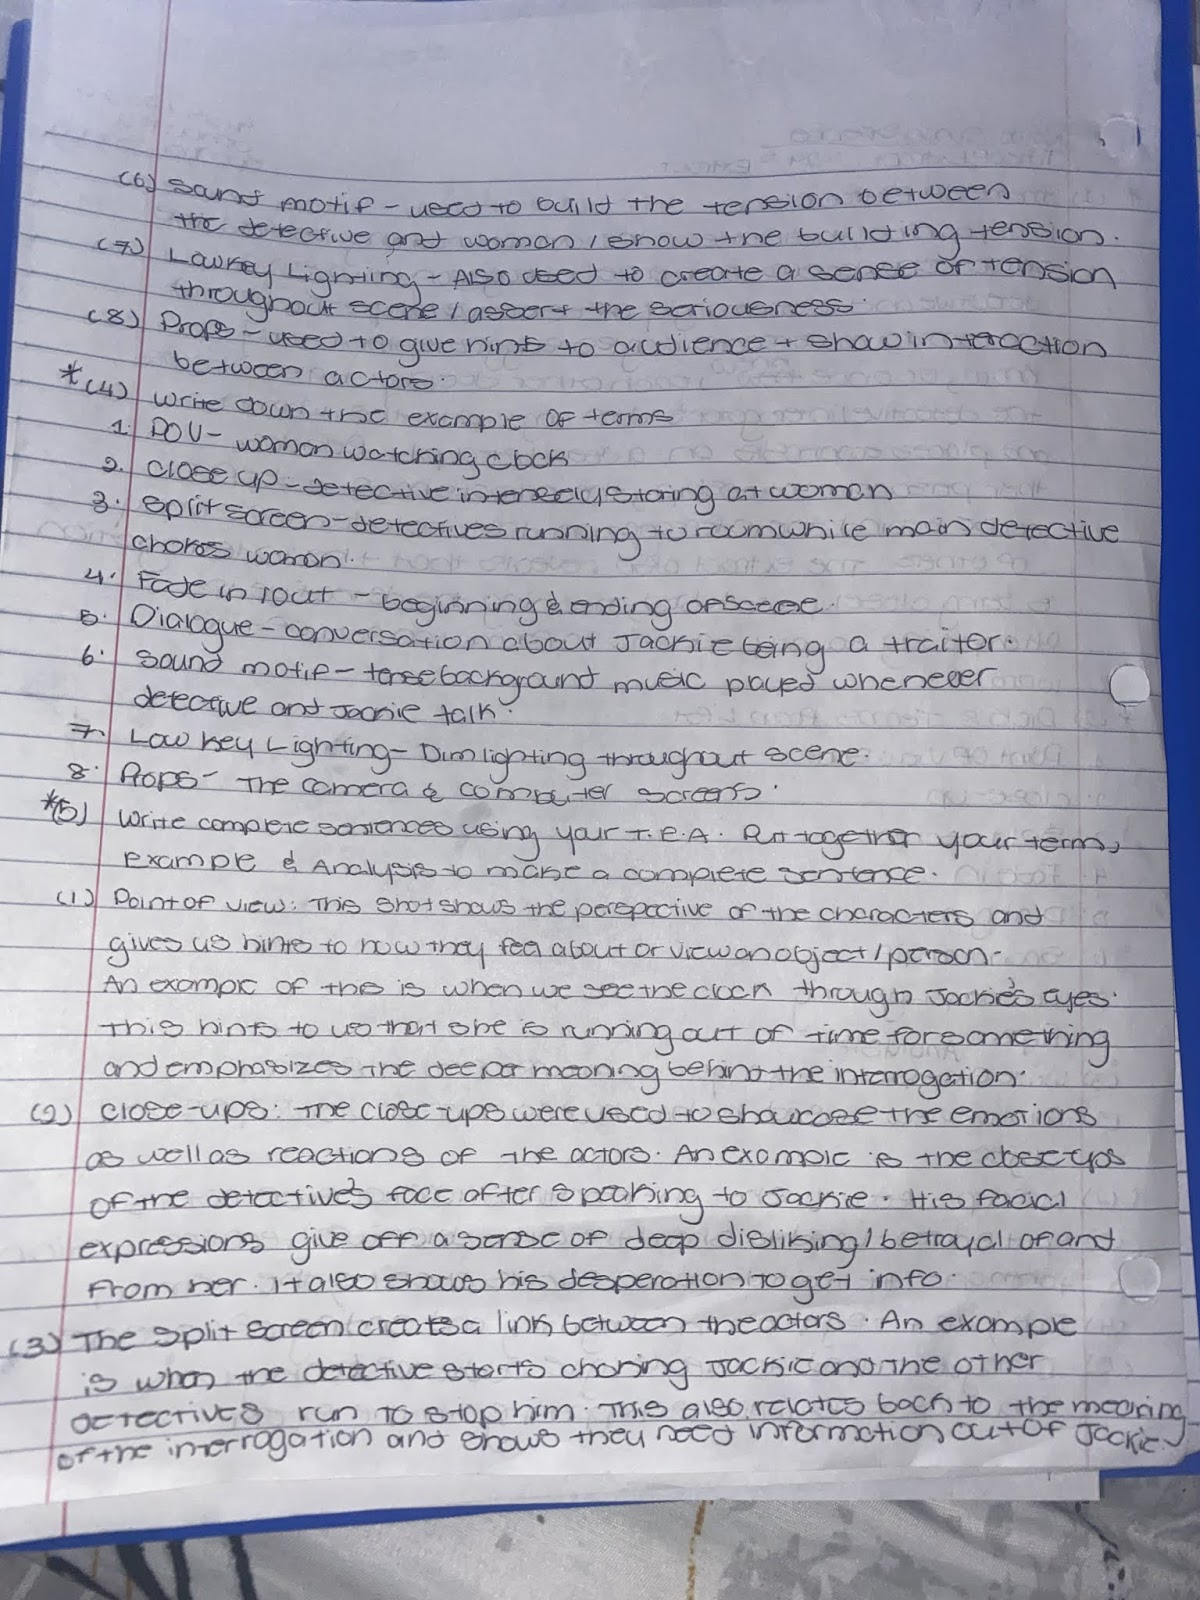 (6) Sound motif - used to build the tension between
the detective and woman / show the building tension.
(7) Lowkey Lighting - Also used to create a sense of tension
throughout scene / assert the seriousness.
(8) Props - used to give hints to audience + show interaction
between actors.
*(4) Write down the example of terms
1. POV - woman watching clock
2. Close up - detective intensely staring at woman
3. Split screen - detectives running to room while main detective
chokes woman.
4. Fade in / out - beginning & ending of scene.
5. Dialogue - conversation about Jackie being a traitor.
6. Sound motif - tense background music played whenever
detective and Jackie talk.
7. Low key Lighting - Dim lighting throughout scene.
8. Props - The camera & computer screens.
*(5) Write complete sentences using your T.E.A. Put together your term,
example & Analysis to make a complete sentence.
(1) Point of view: This shot shows the perspective of the characters and
gives us hints to how they feel about or view an object / person.
An example of this is when we see the clock through Jackie's eyes.
This hints to us that she is running out of time for something
and emphasizes the deeper meaning behind the interrogation.
(2) Close-ups: The close-ups were used to showcase the emotions
as well as reactions of the actors. An example is the close ups
of the detective's face after speaking to Jackie. His facial
expressions give off a sense of deep disliking / betrayal of and
from her. It also shows his desperation to get info.
(3) The split screen creates a link between the actors. An example
is when the detective starts choking Jackie and the other
detectives run to stop him. This also relates back to the meaning
of the interrogation and shows they need information out of Jackie.